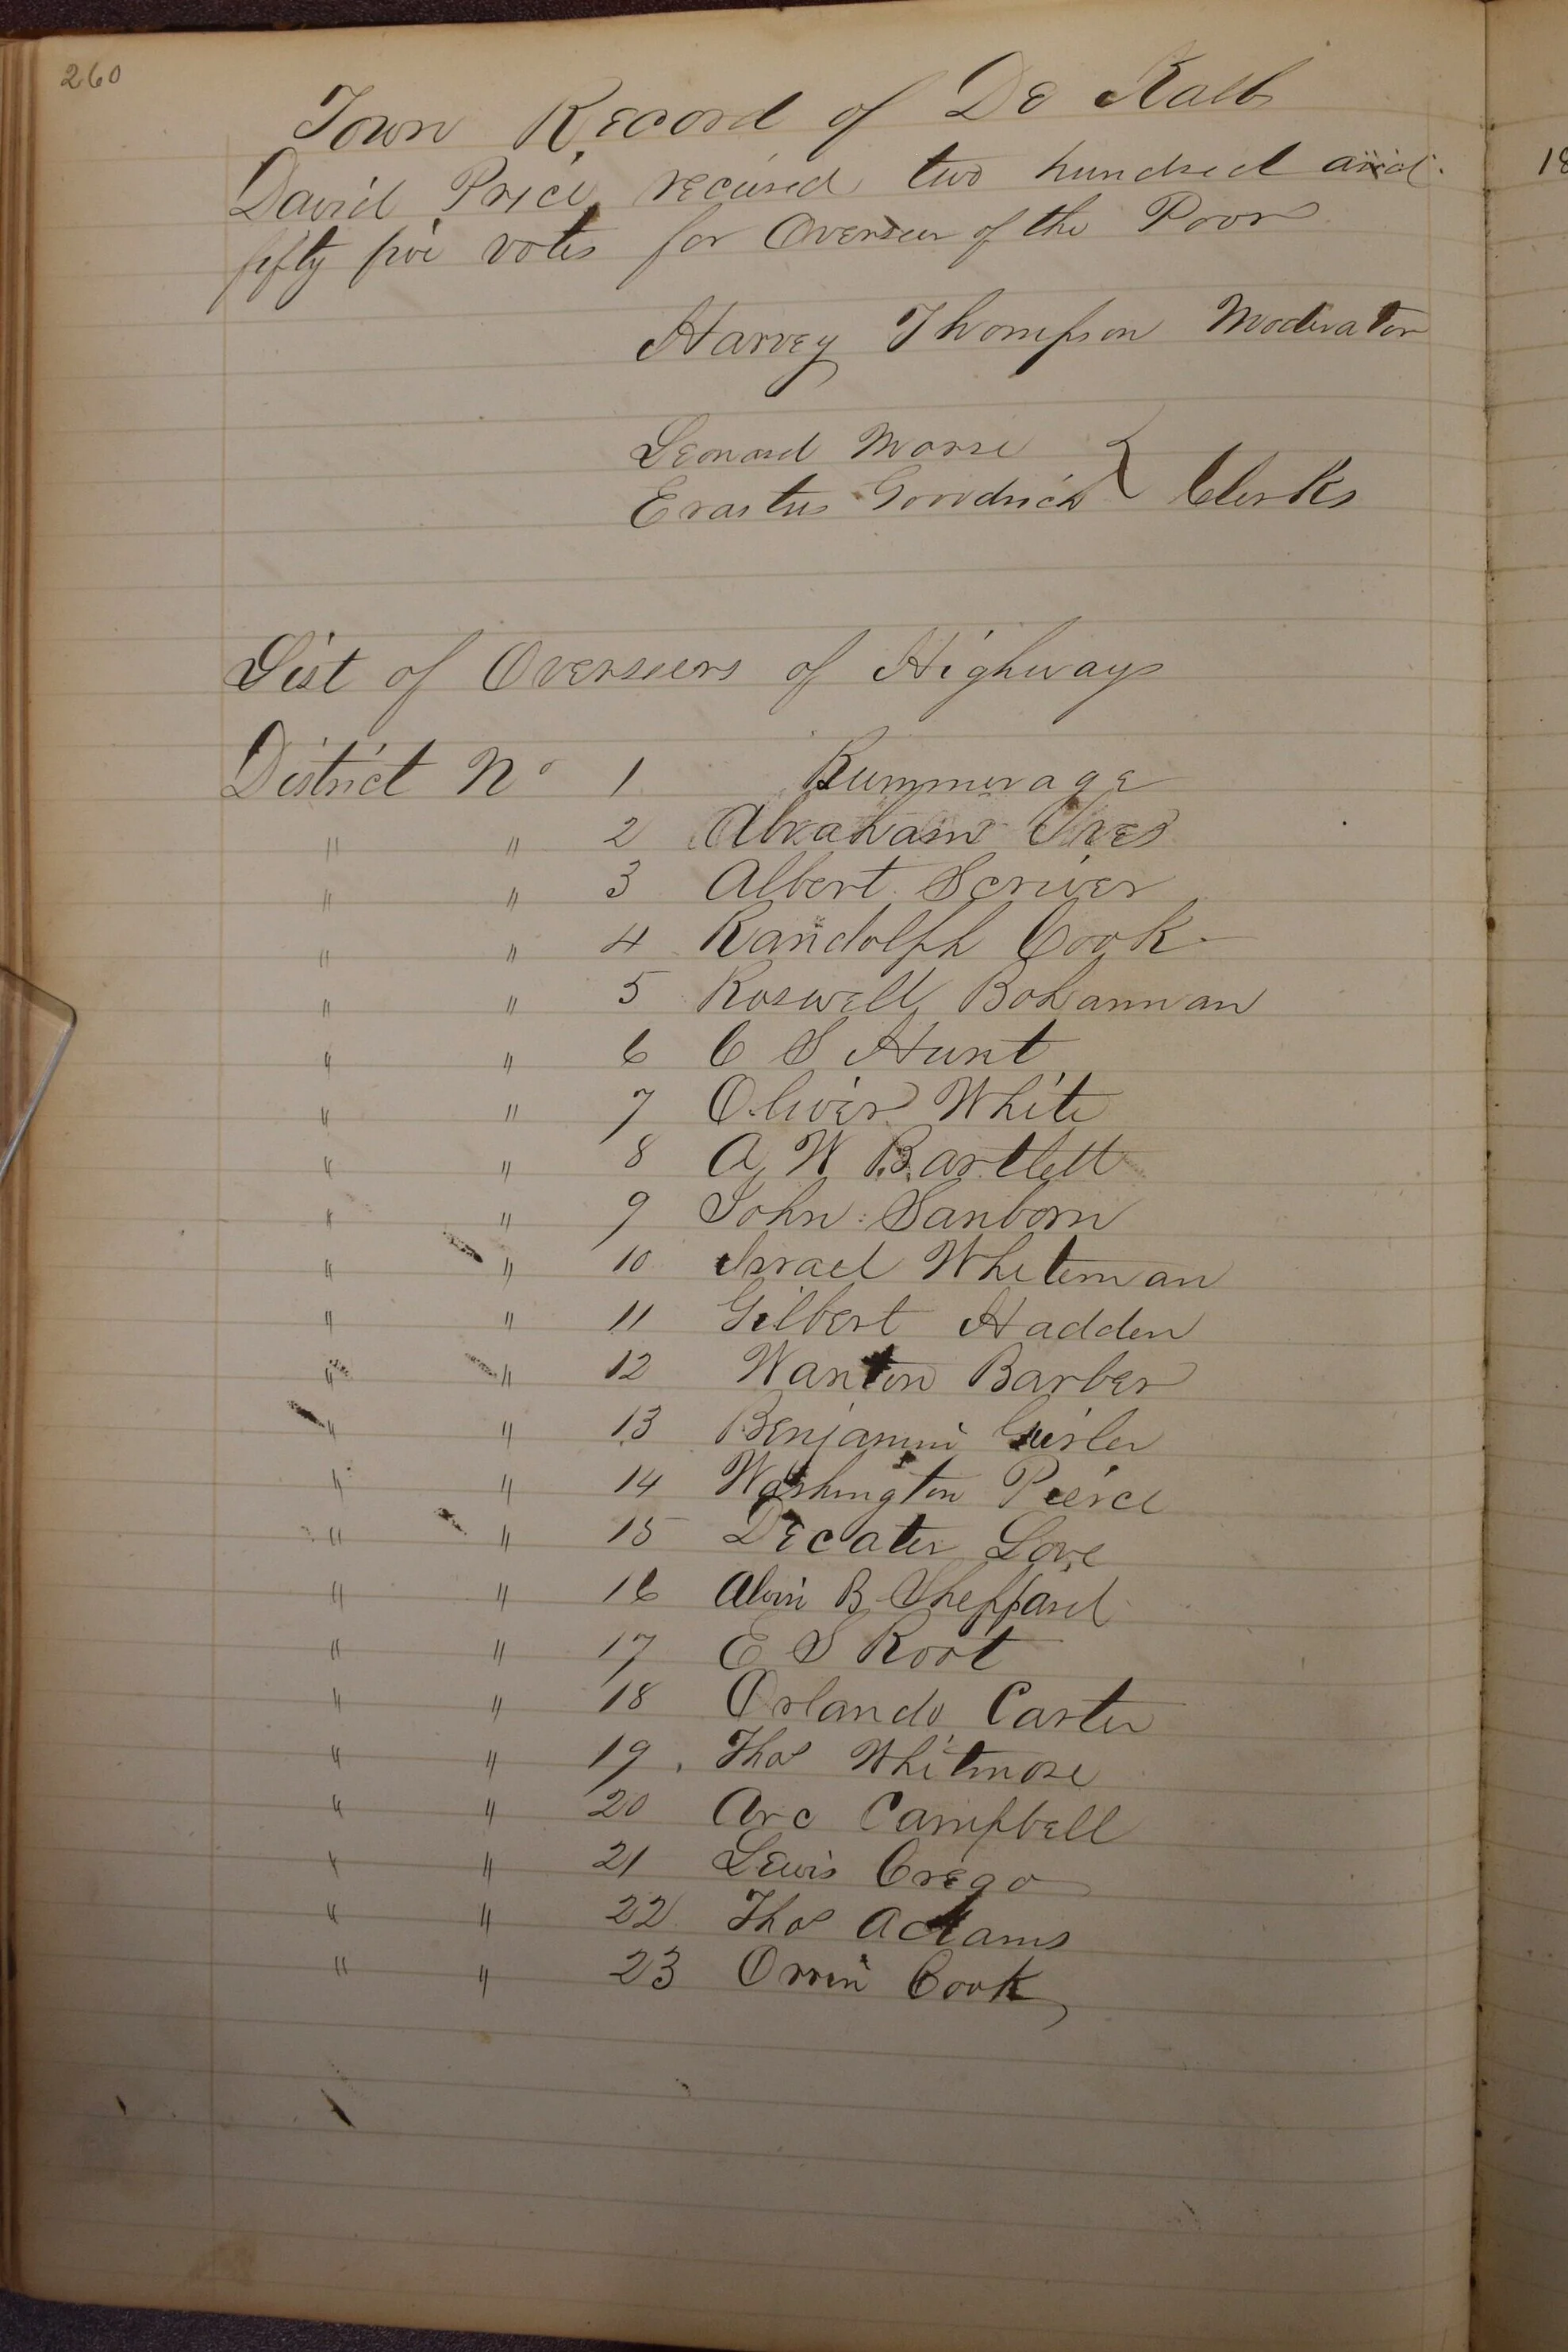 260
Town Record of De Kalb
David Price received two hundred and
fifty five votes for Overseer of the Poor
Harvey Thompson Moderator
Leonard Morse
Erastus Goodrich } Clerks
List of Overseers of Highways
District No 1 Rummerage
" " 2 Abraham Ives
" " 3 Albert Scriver
" " 4 Randolph Cook
" " 5 Roswell Bohannan
" " 6 C S Hunt
" " 7 Oliver White
" " 8 A W Bartlett
" " 9 John Sanborn
" " 10 Israel Whiteman
" " 11 Gilbert Hadden
" " 12 Wanton Barber
" " 13 Benjamin
" " 14 Washington Pierce
" " 15 Decater Love
" " 16 Alvin B Sheppard
" " 17 E S Root
" " 18 Orlando Carter
" " 19 Thos Whitmore
" " 20 Arc Campbell
" " 21 Lewis Crego
" " 22 Thos Adams
" " 23 Orrin Cook
18